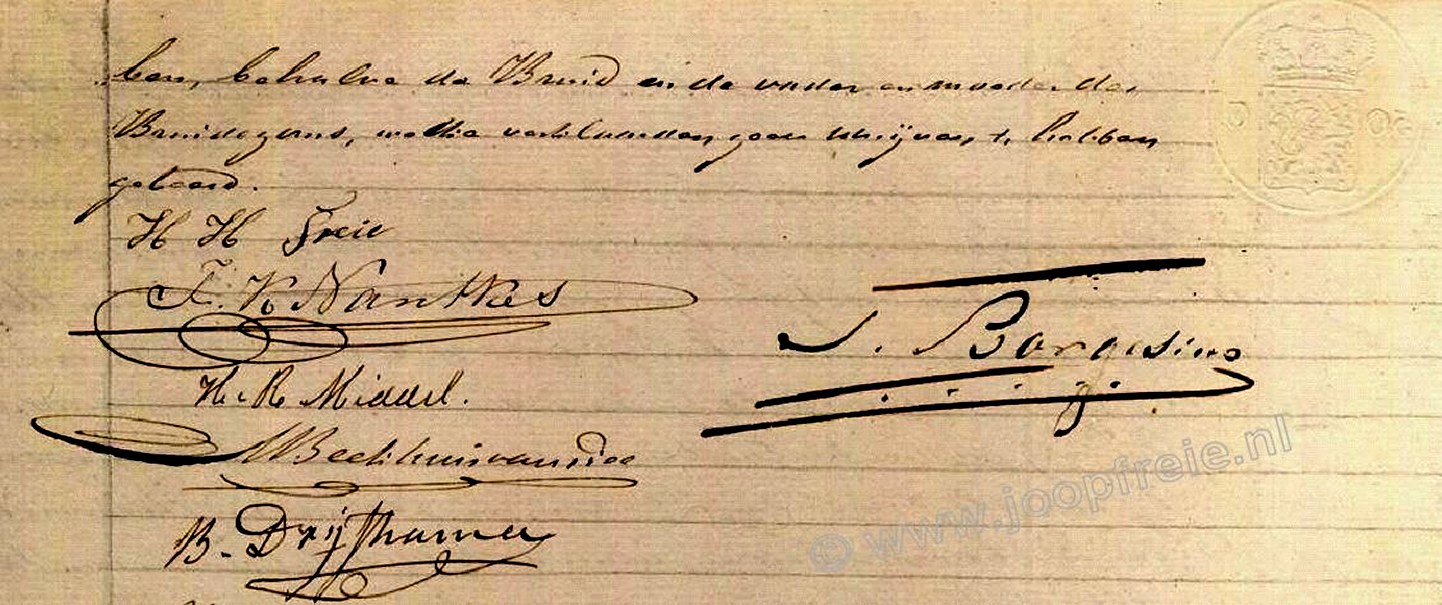 ben, behalve de Bruid en de vader en moeder des
Bruidegoms, welke verklaarden geen schrijven te hebben
geleerd.
H H Freie
F. K. Nantkes
H. R. Middel.
B. Drijfhamer
J. Borgesius
© www.joopfreie.nl